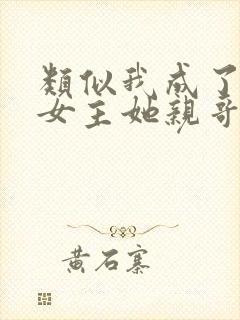 類似我成了
女主她親哥
黃石寨